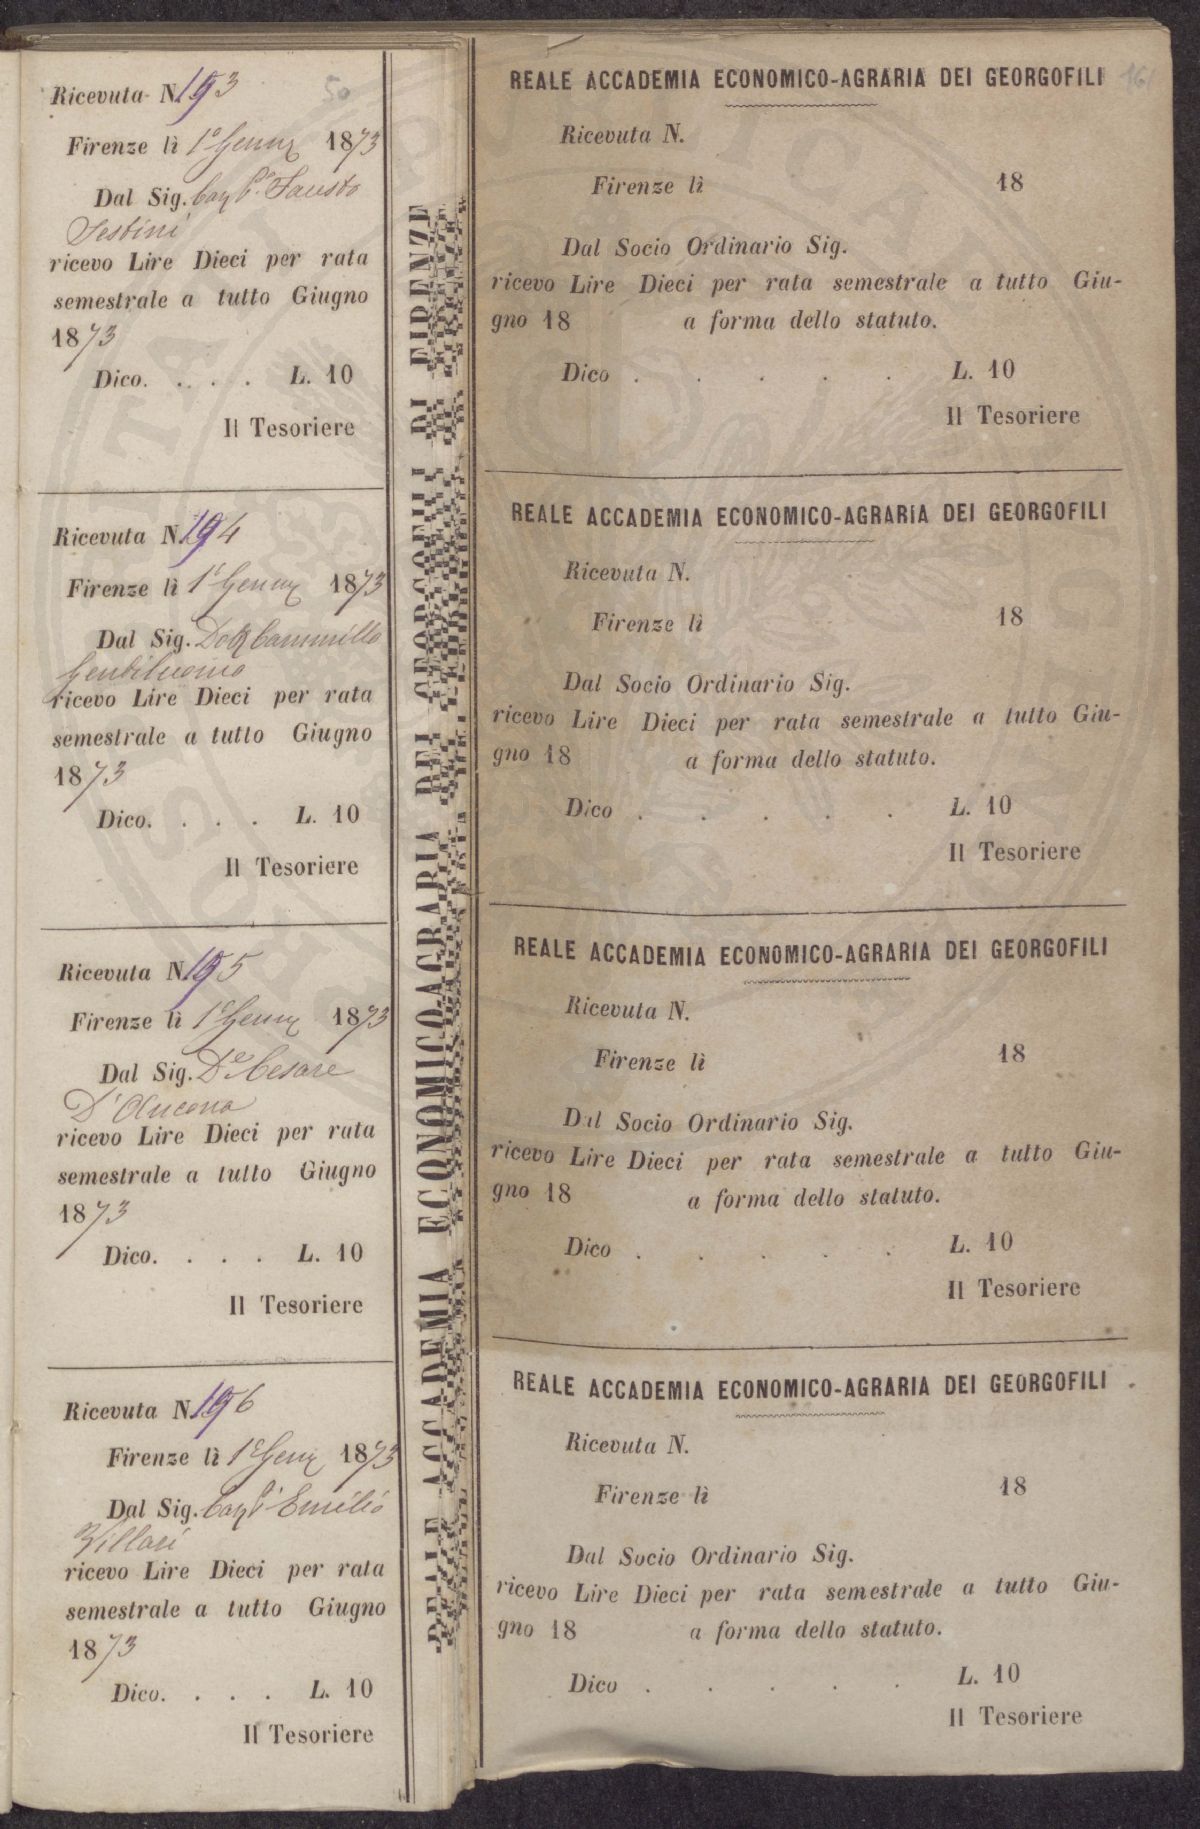 Ricevuta N. 193
50
Firenze lì 1º Genn 1873
Dal Sig. Cav Pe Fausto
Sestini
ricevo Lire Dieci per rata
semestrale a tutto Giugno
1873
Dico. . . . . L. 10
Il Tesoriere
Ricevuta N. 194
Firenze lì 1º Genn 1873
Dal Sig. Dott Cammillo
Gentiluomo
ricevo Lire Dieci per rata
semestrale a tutto Giugno
1873
Dico. . . . L. 10
Il Tesoriere
Ricevuta N. 195
Firenze lì 1º Genn 1873
Dal Sig. De Cesare
D'Ancona
ricevo Lire Dieci per rata
semestrale a tutto Giugno
1873
Dico. . . . L. 10
Il Tesoriere
Ricevuta N. 196
Firenze lì 1º Genn 1873
Dal Sig. Cav Emilio
Villari
ricevo Lire Dieci per rata
semestrale a tutto Giugno
1873
Dico. . . . L. 10
Il Tesoriere
REALE ACCADEMIA ECONOMICO-AGRARIA DEI GEORGOFILI DI FIRENZE
REALE ACCADEMIA ECONOMICO-AGRARIA DEI GEORGOFILI
161
Ricevuta N.
Firenze lì 18
Dal Socio Ordinario Sig.
ricevo Lire Dieci per rata semestrale a tutto Giu-
gno 18 a forma dello statuto.
Dico . . . . . L. 10
Il Tesoriere
REALE ACCADEMIA ECONOMICO-AGRARIA DEI GEORGOFILI
Ricevuta N.
Firenze lì 18
Dal Socio Ordinario Sig.
ricevo Lire Dieci per rata semestrale a tutto Giu-
gno 18 a forma dello statuto.
Dico . . . . . L. 10
Il Tesoriere
REALE ACCADEMIA ECONOMICO-AGRARIA DEI GEORGOFILI
Ricevuta N.
Firenze lì 18
Dal Socio Ordinario Sig.
ricevo Lire Dieci per rata semestrale a tutto Giu-
gno 18 a forma dello statuto.
Dico . . . . . L. 10
Il Tesoriere
REALE ACCADEMIA ECONOMICO-AGRARIA DEI GEORGOFILI
Ricevuta N.
Firenze lì 18
Dal Socio Ordinario Sig.
ricevo Lire Dieci per rata semestrale a tutto Giu-
gno 18 a forma dello statuto.
Dico . . . . . L. 10
Il Tesoriere